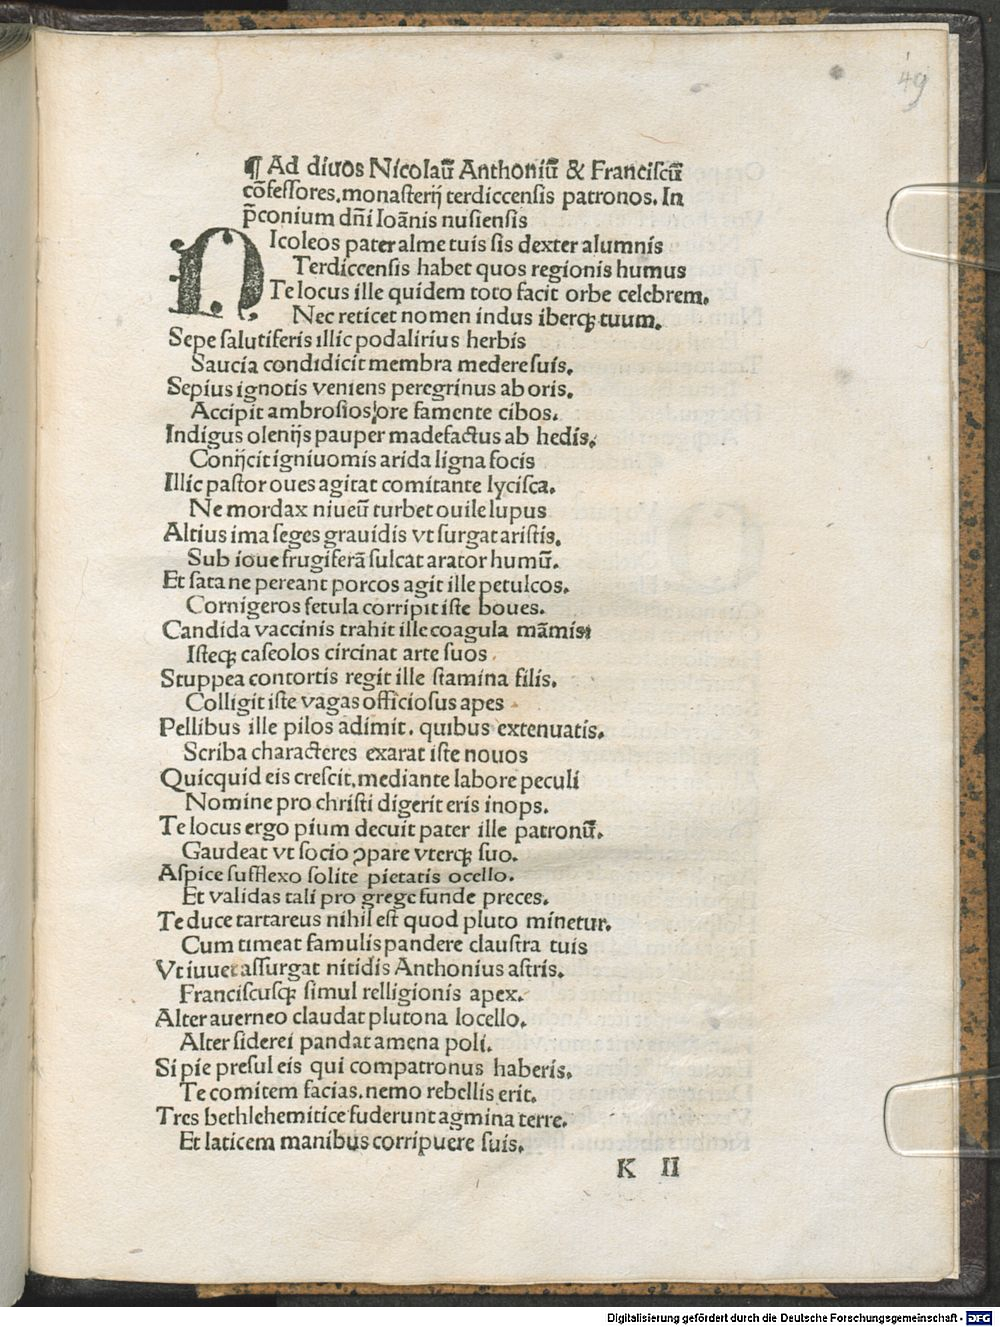 49
¶ Ad diuos Nicolaū Anthoniū & Franciscū
cōfessores. monasterij terdiccensis patronos. In
p̄conium dn̄i Ioānis nusiensis
NIcoleos pater alme tuis sis dexter alumnis
Terdiccensis habet quos regionis humus
Te locus ille quidem toto facit orbe celebrem.
Nec reticet nomen indus iberqꝫ tuum.
Sepe salutiferis illic podalirius herbis
Saucia condidicit membra medere suis.
Sepius ignotis veniens peregrinus ab oris.
Accipit ambrosios ore famente cibos.
Indigus olenijs pauper madefactus ab hedis.
Conijcit igniuomis arida ligna focis
Illic pastor oues agitat comitante lycisca.
Ne mordax niueū turbet ouile lupus
Altius ima seges grauidis vt surgat aristis.
Sub ioue frugiferā sulcat arator humū.
Et sata ne pereant porcos agit ille petulcos.
Cornigeros fetula corripit iste boues.
Candida vaccinis trahit ille coagula māmis
Isteqꝫ caseolos circinat arte suos
Stuppea contortis regit ille stamina filis.
Colligit iste vagas officiosus apes
Pellibus ille pilos adimit. quibus extenuatis.
Scriba characteres exarat iste nouos
Quicquid eis crescit. mediante labore peculi
Nomine pro christi digerit eris inops.
Te locus ergo pium decuit pater ille patronū.
Gaudeat vt socio ꝯpare vterqꝫ suo.
Aspice sufflexo solite pietatis ocello.
Et validas tali pro grege funde preces.
Te duce tartareus nihil est quod pluto minetur.
Cum timeat famulis pandere claustra tuis
Vt iuuet assurgat nitidis Anthonius astris.
Franciscusqꝫ simul relligionis apex.
Alter auerneo claudat plutona locello.
Alter siderei pandat amena poli.
Si pie presul eis qui compatronus haberis.
Te comitem facias. nemo rebellis erit.
Tres bethlehemitice fuderunt agmina terre.
Et laticem manibus corripuere suis.
K II
Digitalisierung gefördert durch die Deutsche Forschungsgemeinschaft - DFG